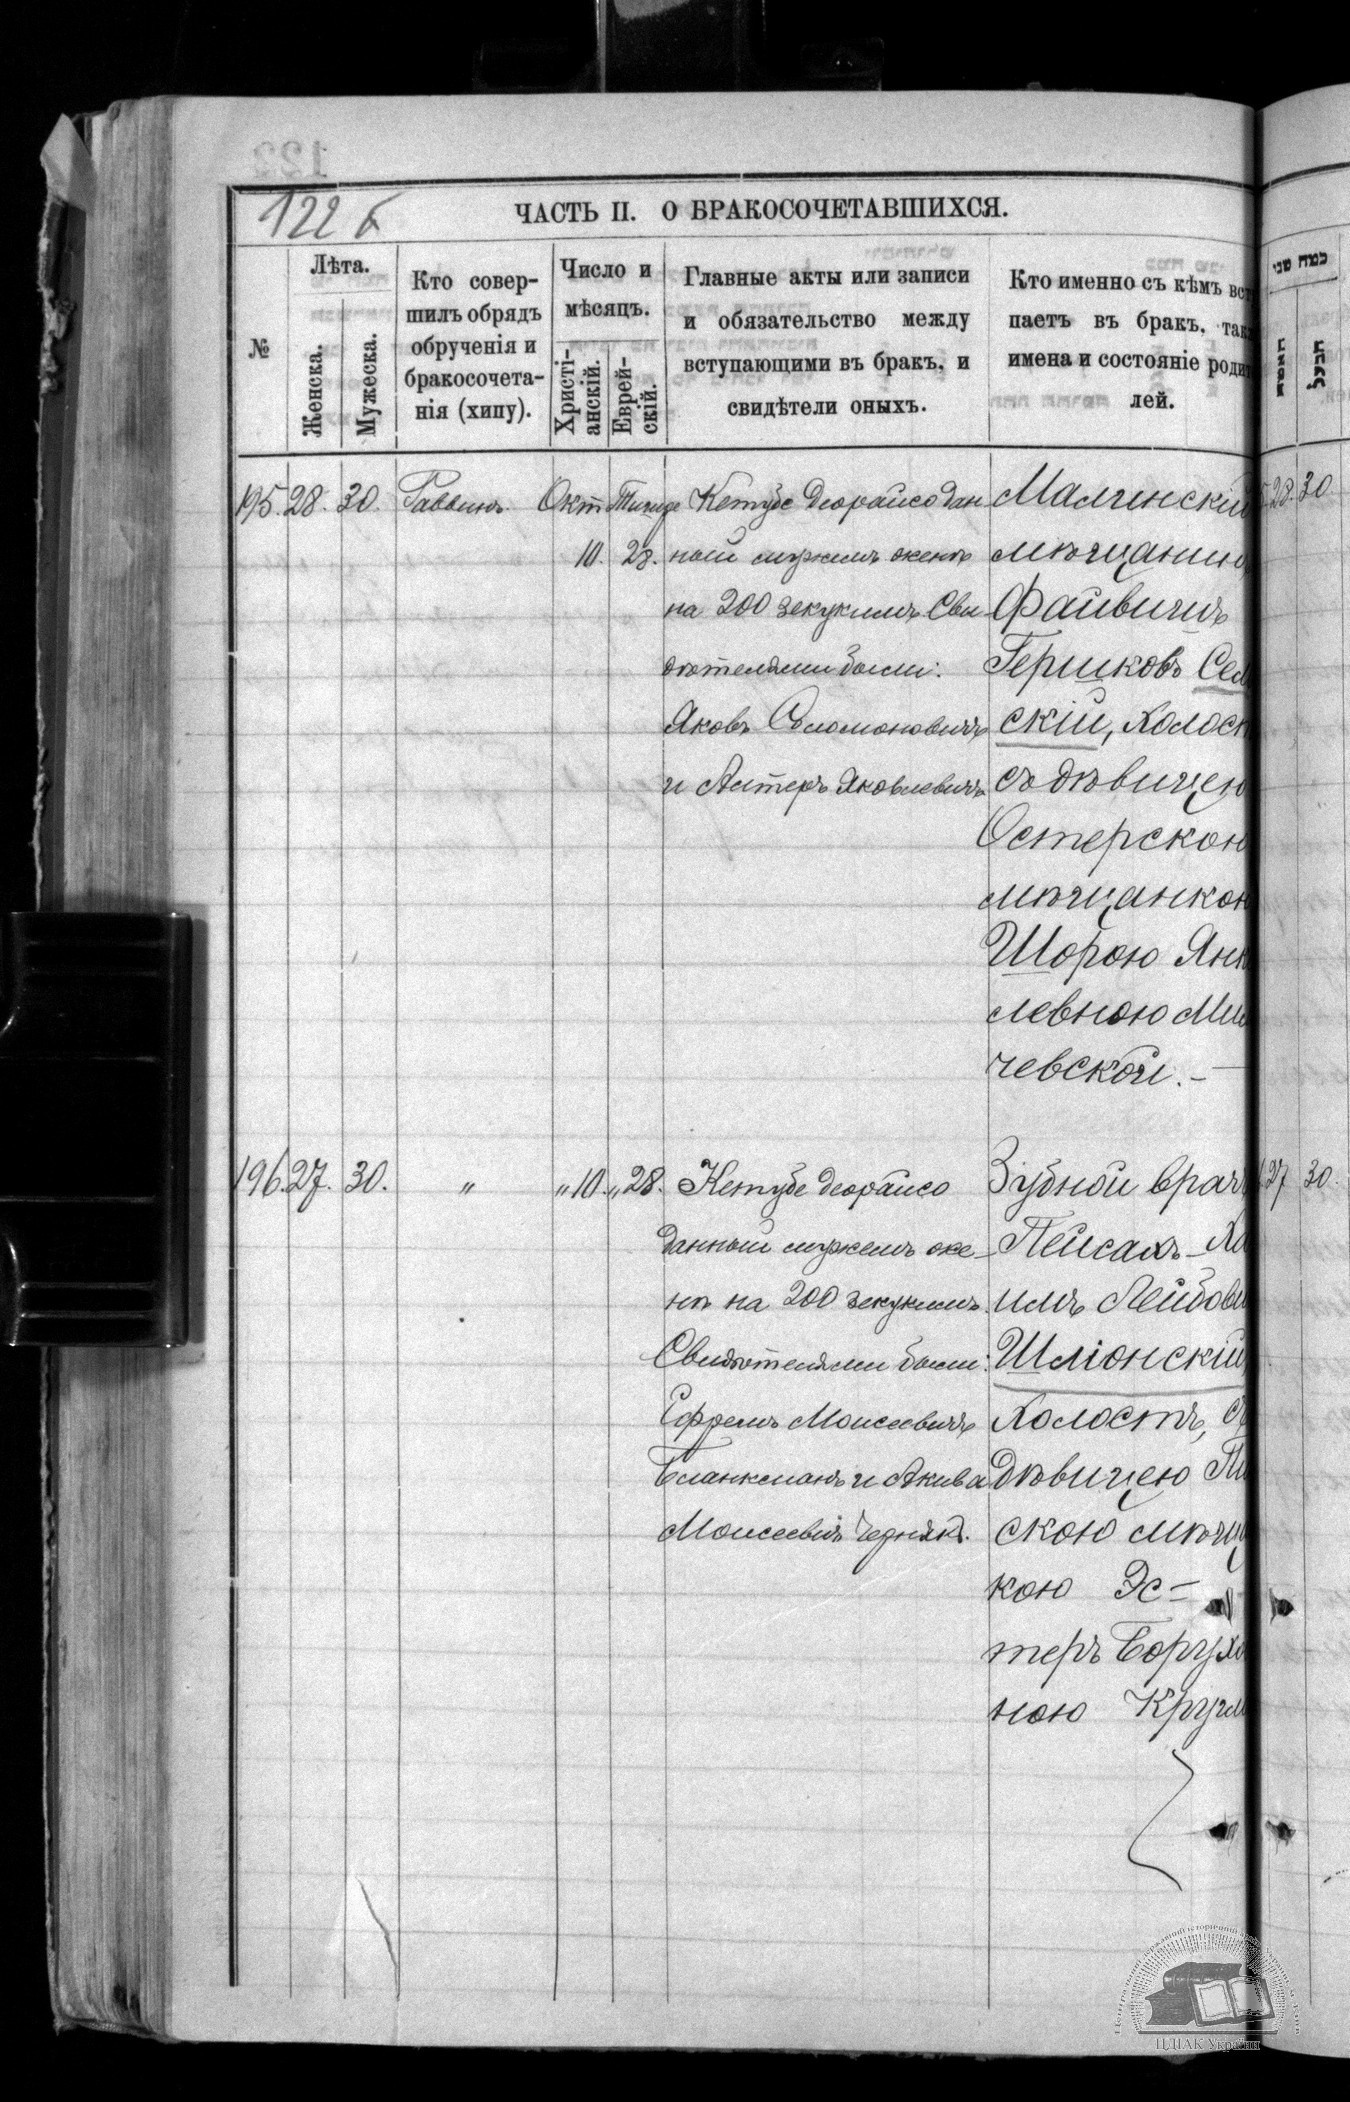 122 б
ЧАСТЬ II. О БРАКОСОЧЕТАВШИХСЯ.
№
Лѣта.
Женска.
Мужеска.
Кто совер-
шилъ обрядъ
обрученія и
бракосочета-
нія (хипу).
Число и
мѣсяцъ.
Христі-
анскій.
Еврей-
скій.
Главные акты или записи
и обязательство между
вступающими въ бракъ, и
свидѣтели оныхъ.
Кто именно съ кѣмъ вст
паетъ въ бракъ, так
имена и состояніе родит
лей.
195. 28. 30. Раввинъ. Окт Тишре
10. 28.
Кетубе Деорайсо дан
ный мужемъ женѣ
на 200 зекукимъ Сви
дѣтелями были:
Яковъ Соломоновичъ
и Алтеръ Яковлевичъ
Малинскій
мѣщанинъ
Файвишъ
Гершковъ Сел
скій, холост
съ дѣвицею
Остерскою
мѣщанкою
Шорою Янк
левною Ми
чевской. —
28. 30
196. 27. 30. „ „ 10. „ 28.
Кетубе деорайсо
данный мужемъ же-
нѣ на 200 зекукимъ.
Свидѣтелями были:
Ефремъ Моисеевичъ
Бланкманъ и Акива
Моисеевичъ Чернякъ.
Зубной врачъ
Пейсахъ-Ха
имъ Лейбови
Шліонскій,
холостъ, съ
дѣвицею Пи
скою мѣщ
кою Эс-
теръ Борухо
ною Кругл
27 30.
ЦДІАК України